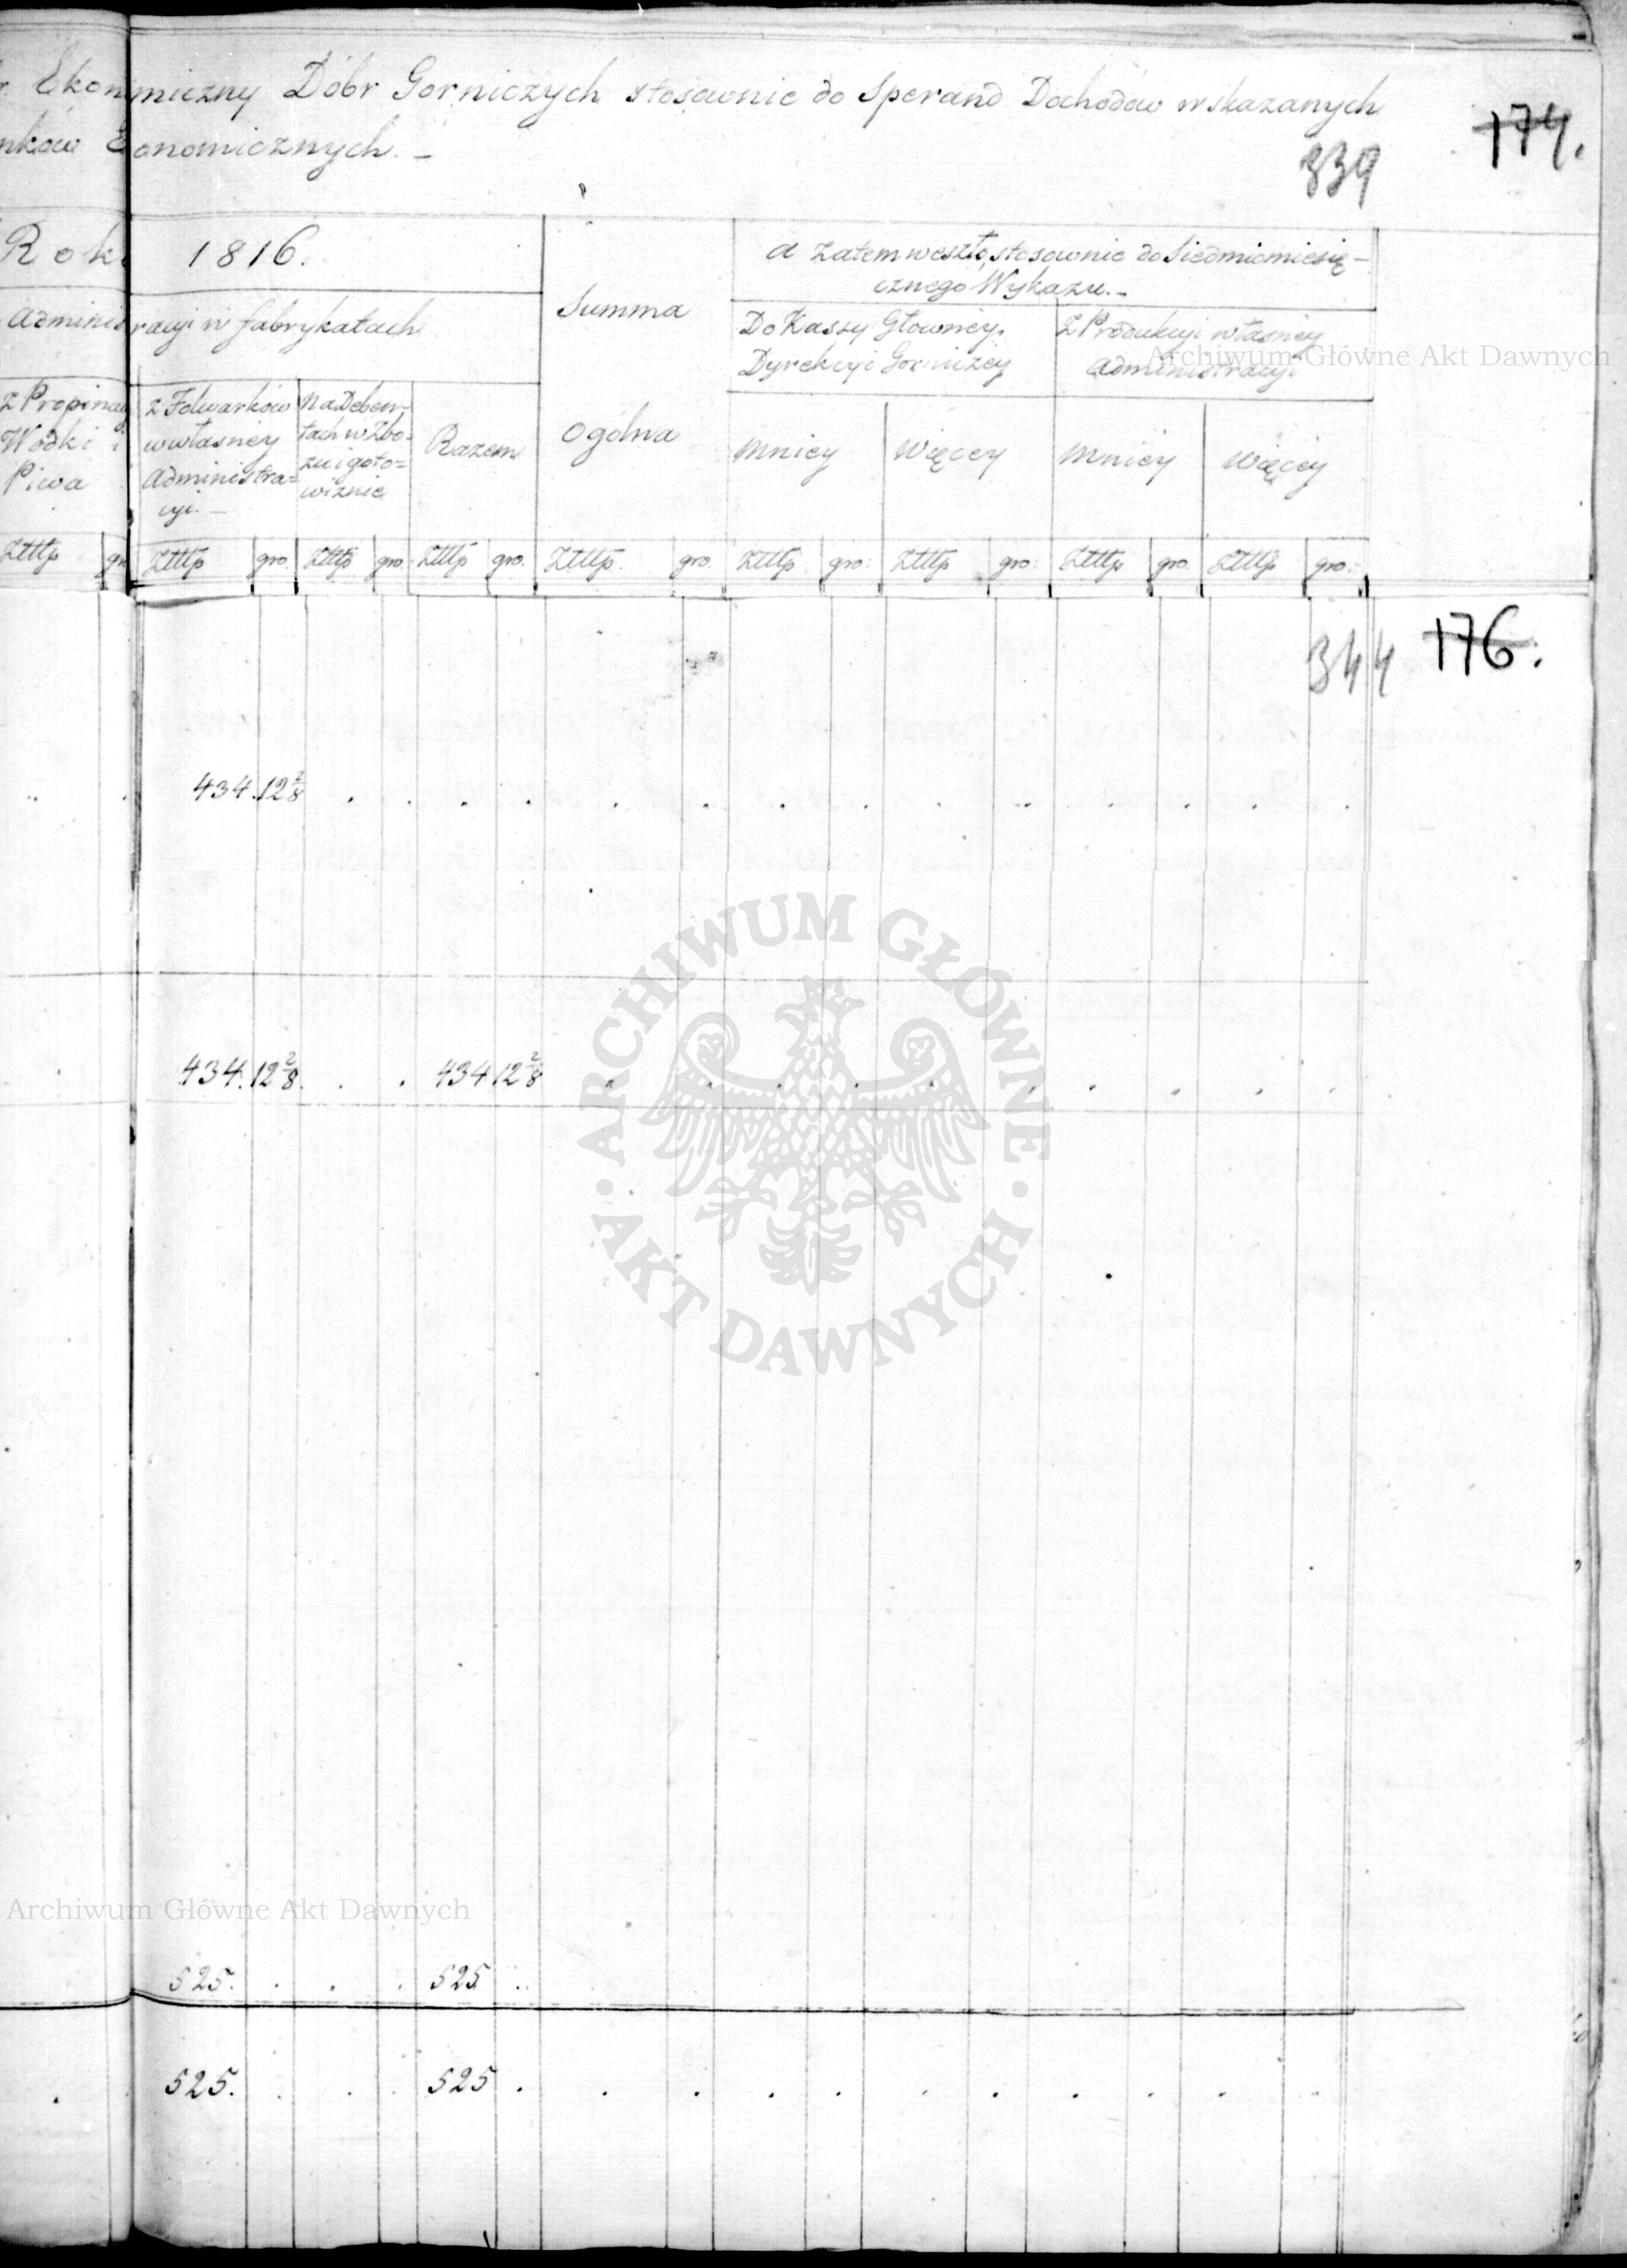 Ekonomiczny Dóbr Gorniczych stosownie do Sperand Dochodów wskazanych
onomicznych. –
174.
339
Roku 1816.
Summa
Ogolna
a zatem weszło, stosownie do Siedmiomiesię–
cznego Wykazu. –
Administracyi w fabrykatach
Do Kassy Głowney
Dyrekcyi Gorniczey
Z Produkcyi własney
Administracyi
Z Propinacyi
Wodki i
Piwa
Z Folwarków
w własney
Administra=
cyi. –
Na Deben–
tach w Zbo–
zu i goto=
wiznie
Razem
mniey
Więcey
mniey
więcey
Złłłp gro Złłłp gro. Złłłp gro. Złłłp gro. Złłłp. gro. Złłłp gro: Złłłp gro: Złłłp gro. Złłłp gro:
344
176.
434. 12 2/8
434. 12 2/8 . . 434 12 2/8
525. . . . 525 . .
525. . . . 525 .
Archiwum Główne Akt Dawnych
ARCHIWUM GŁÓWNE · AKT DAWNYCH ·
Archiwum Główne Akt Dawnych